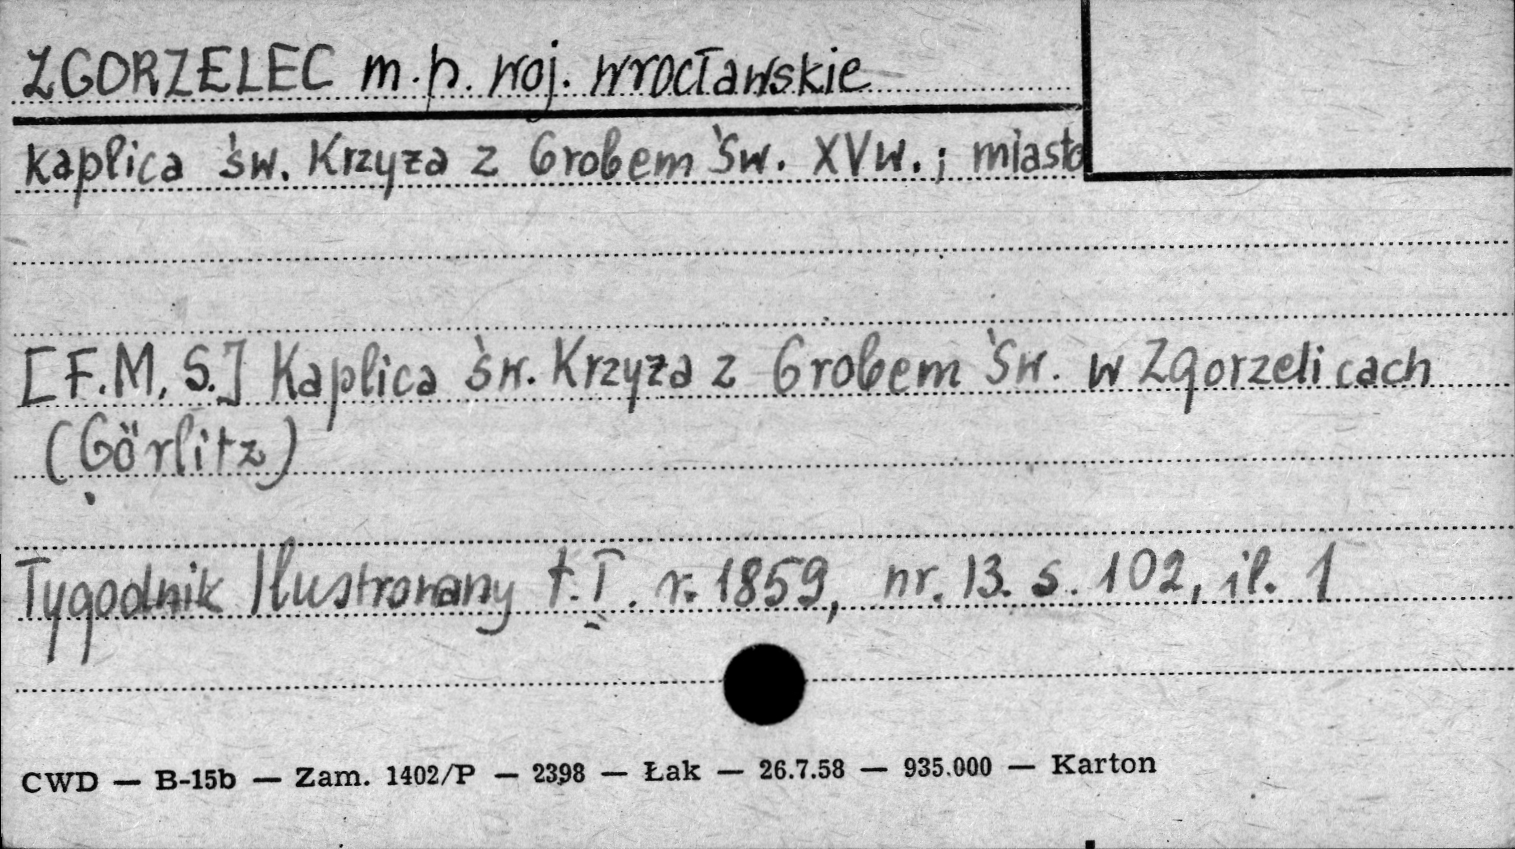 ZGORZELEC m.p. woj. wrocławskie
kaplica św. Krzyża z Grobem Św. XVw.; miasto
[F.M.S.] Kaplica św. Krzyża z Grobem Św. w Zgorzelicach
(Görlitz)
Tygodnik Ilustrowany t.I. r. 1859, nr. 13. s. 102, il. 1
CWD — B-15b — Zam. 1402/P — 2398 — Łak — 26.7.58 — 935.000 — Karton